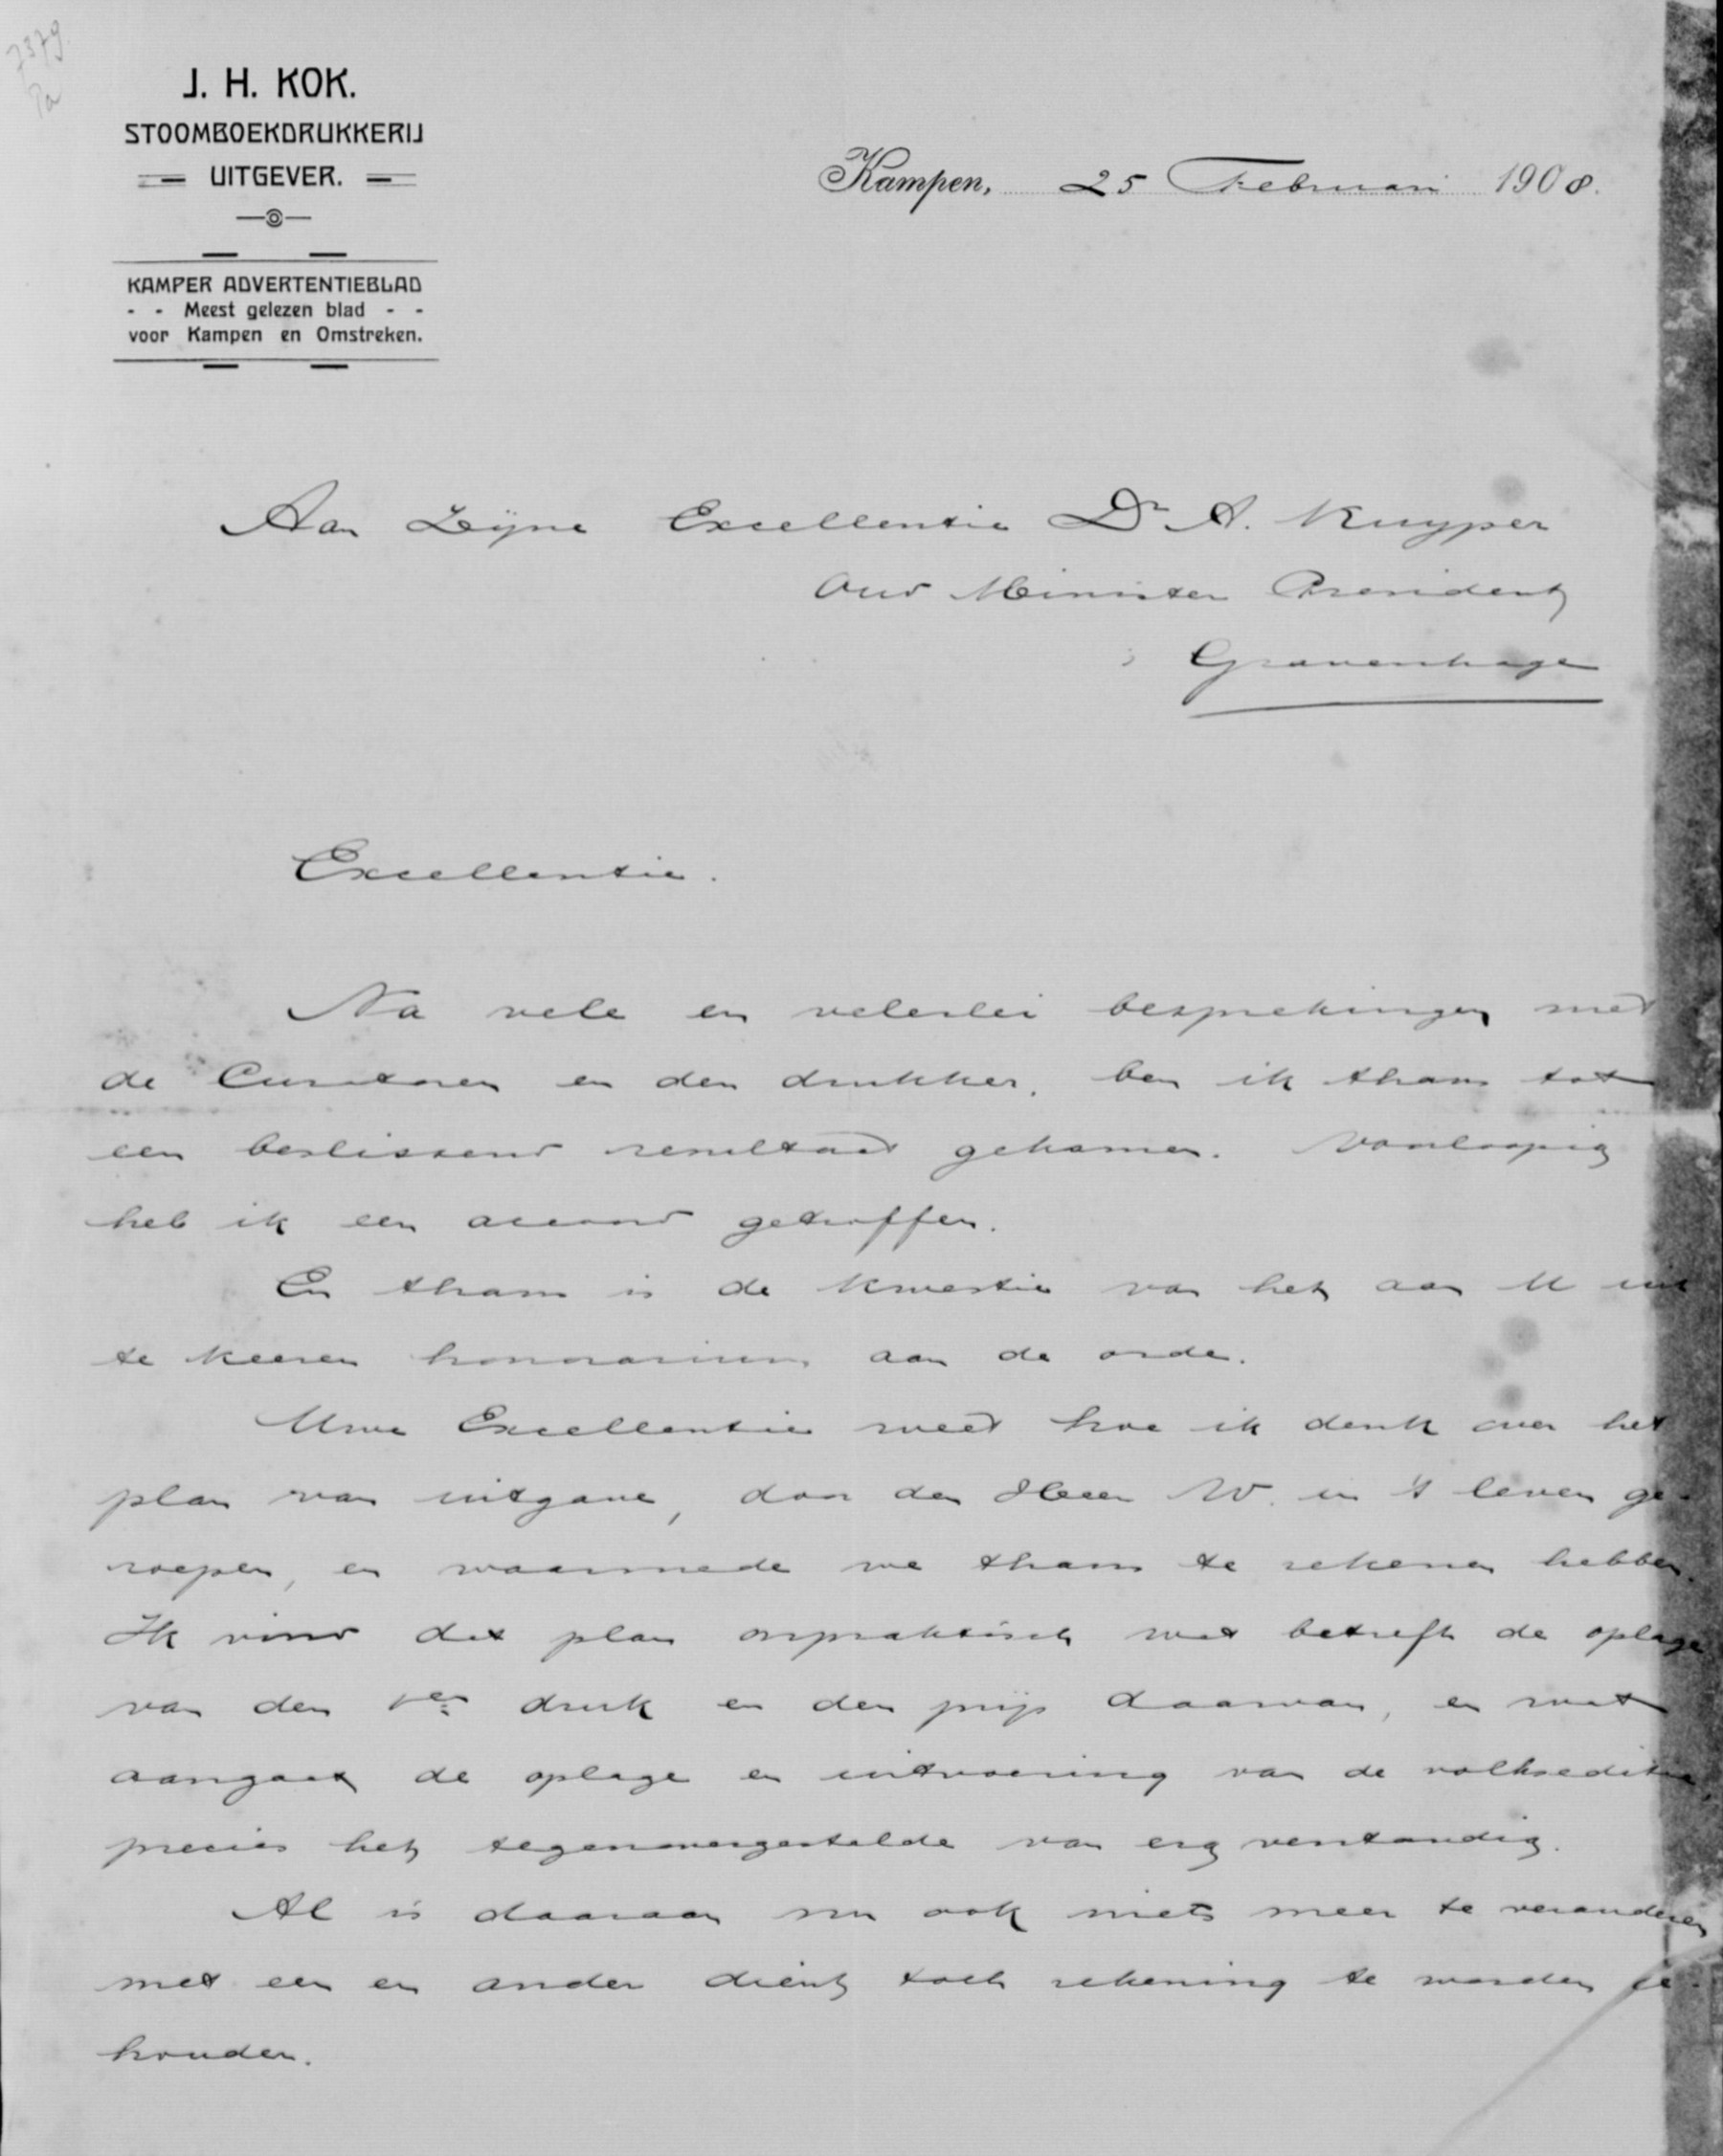 7379
Pa
J. H. KOK.
STOOMBOEKDRUKKERIJ
UITGEVER.
KAMPER ADVERTENTIEBLAD
- - Meest gelezen blad - -
voor Kampen en Omstreken.
Kampen, 25 Februari 1908.
Aan Zijne Excellentie Dr A. Kuyper
Oud Minister President
's Gravenhage
Excellentie.
Na vele en velerlei besprekingen met
de Curatoren en den drukker, ben ik thans tot
een beslissend resultaat gekomen. Voorloopig
heb ik een accoord getroffen.
En thans is de kwestie van het aan U uit
te keeren honorarium aan de orde.
Uwe Excellentie weet hoe ik denk over het
plan van uitgave, door den Heer W. in 't leven ge-
roepen, en waarmede we thans te rekenen hebben.
Ik vind dat plan onpraktisch wat betreft de oplage
van den 1en druk en den prijs daarvan, en wat
aangaat de oplage en uitvoering van de volkseditie,
precies het tegenovergestelde van erg verstandig.
Al is daaraan nu ook niets meer te veranderen
met een en ander dient toch rekening te worden ge-
houden.